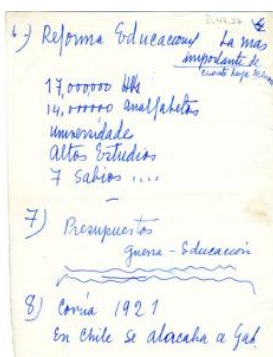 6-) Reforma Educacional La mas
importante de
cuanto haya
17,000,000 Hbs
14,000000 analfabetos
universidades
altos Estudios
7 Sabios ....
7) Presupuestos
guerra - Educacion
8) Corria 1921
En Chile se atacaba a Gab.